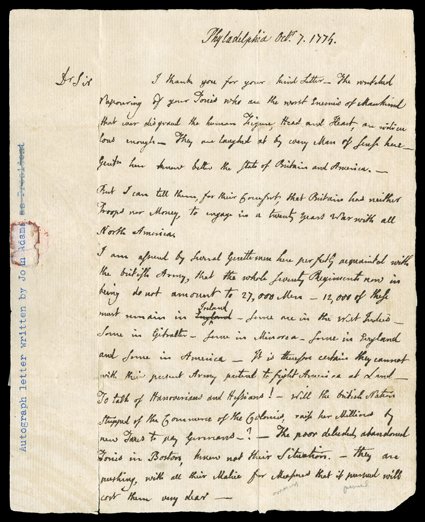 Phyladelphia Octr. 7. 1774.
Dr Sir
I thank you for your kind Letter — The wretched
Reasoning of your Tories who are the worst Enemies of Mankind
that ever disgraced the human Figure, Head and Heart, are
enough — They are laughed at by every Man of Sense here —
Gentn here know better the State of Britain and America. —
But I can tell them, for their Comfort, that Britain has neither
Troops nor Money, to engage in a twenty Years War with all
North America.
I am assured by several Gentlemen here perfectly acquainted with
the british Army, that the whole Seventy Regiments now in
being do not amount to 27,000 Men — 12,000 of these
Ireland
must remain in England — Some are in the West Indies —
Some in Gibralter — Some in Minorca — Some in England
and Some in America — It is therefore certain they cannot
with their present Army pretend to fight America at Land —
To talk of Hanoverians and Hessians! — will the british Nation
Stripped of the Commerce of the Colonies, raise her Millions by
new Taxes to pay Germans — ? — The poor deluded, abandoned
Tories in Boston, know not their Situation. — they are
pushing, with all their Malice for Measures that if pursued will
cost them very dear —
pursued
Autograph letter written by John Adams as President